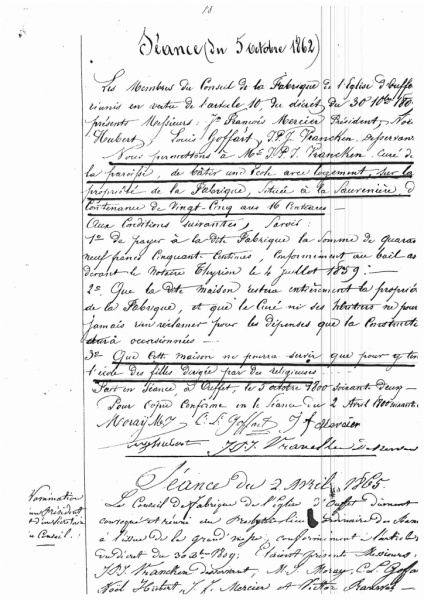 18
Séance (du 5 octobre 1862)
Les Membres du Conseil de la Fabrique de l'Eglise d'Ouffe
réunis en vertu de l'article 10, du décret du 30 10bre 180
présents Messieurs: Jh François Mercier Président, Noë
Hubert, Louis Goffart, J.P.J. Francken, Desservan
Nous permettons à Mr J.P.J. Francken Curé de
la paroisse, de bâtir une Ecole avec logement, sur la
propriété de la Fabrique, située à la Sauvenière, d
Contenance de Vingt-Cinq ares 16 Centiares
Aux Conditions suivantes, Savoir:
1° de payer à la dite Fabrique la Somme de quaran
neuf francs Cinquante Centimes, Conformément au bail as
devant le Notaire Thyrion le 4 juillet 1859.
2° Que la dite maison restera entièrement la proprié
de la Fabrique, et que le Curé ni ses héritiers ne pour
jamais rien réclamer pour les dépenses que la Construct
aura occasionnées
3° Que Cette maison ne pourra servir que pour y ten
l'école des filles dirigée par des religieuses
Fait en Séance, à Ouffet, le 5 octobre 1800 Soixante deux
Pour Copie Conforme en la Séance du 2 Avril 1800
Moray M J C. L. Goffart J f Mercier
Hubert J.P.J. Francken Desservan
Séance du 2 Avril 1865
Nomination
du Président
et du Secrétaire
du Conseil.
Le Conseil de Fabrique de l'Eglise d'Ouffet dûment
convoqué et réuni au Presbytère lieu ordinaire des
à l'issue de la grand messe, conformément à l'article
du décret du 30 Xbre 1809; étaient présents Messieurs:
J.P.J. Francken desservant, M. J. Moray, C. L. Goffa
Noël Hubert, J. F. Mercier et Victor